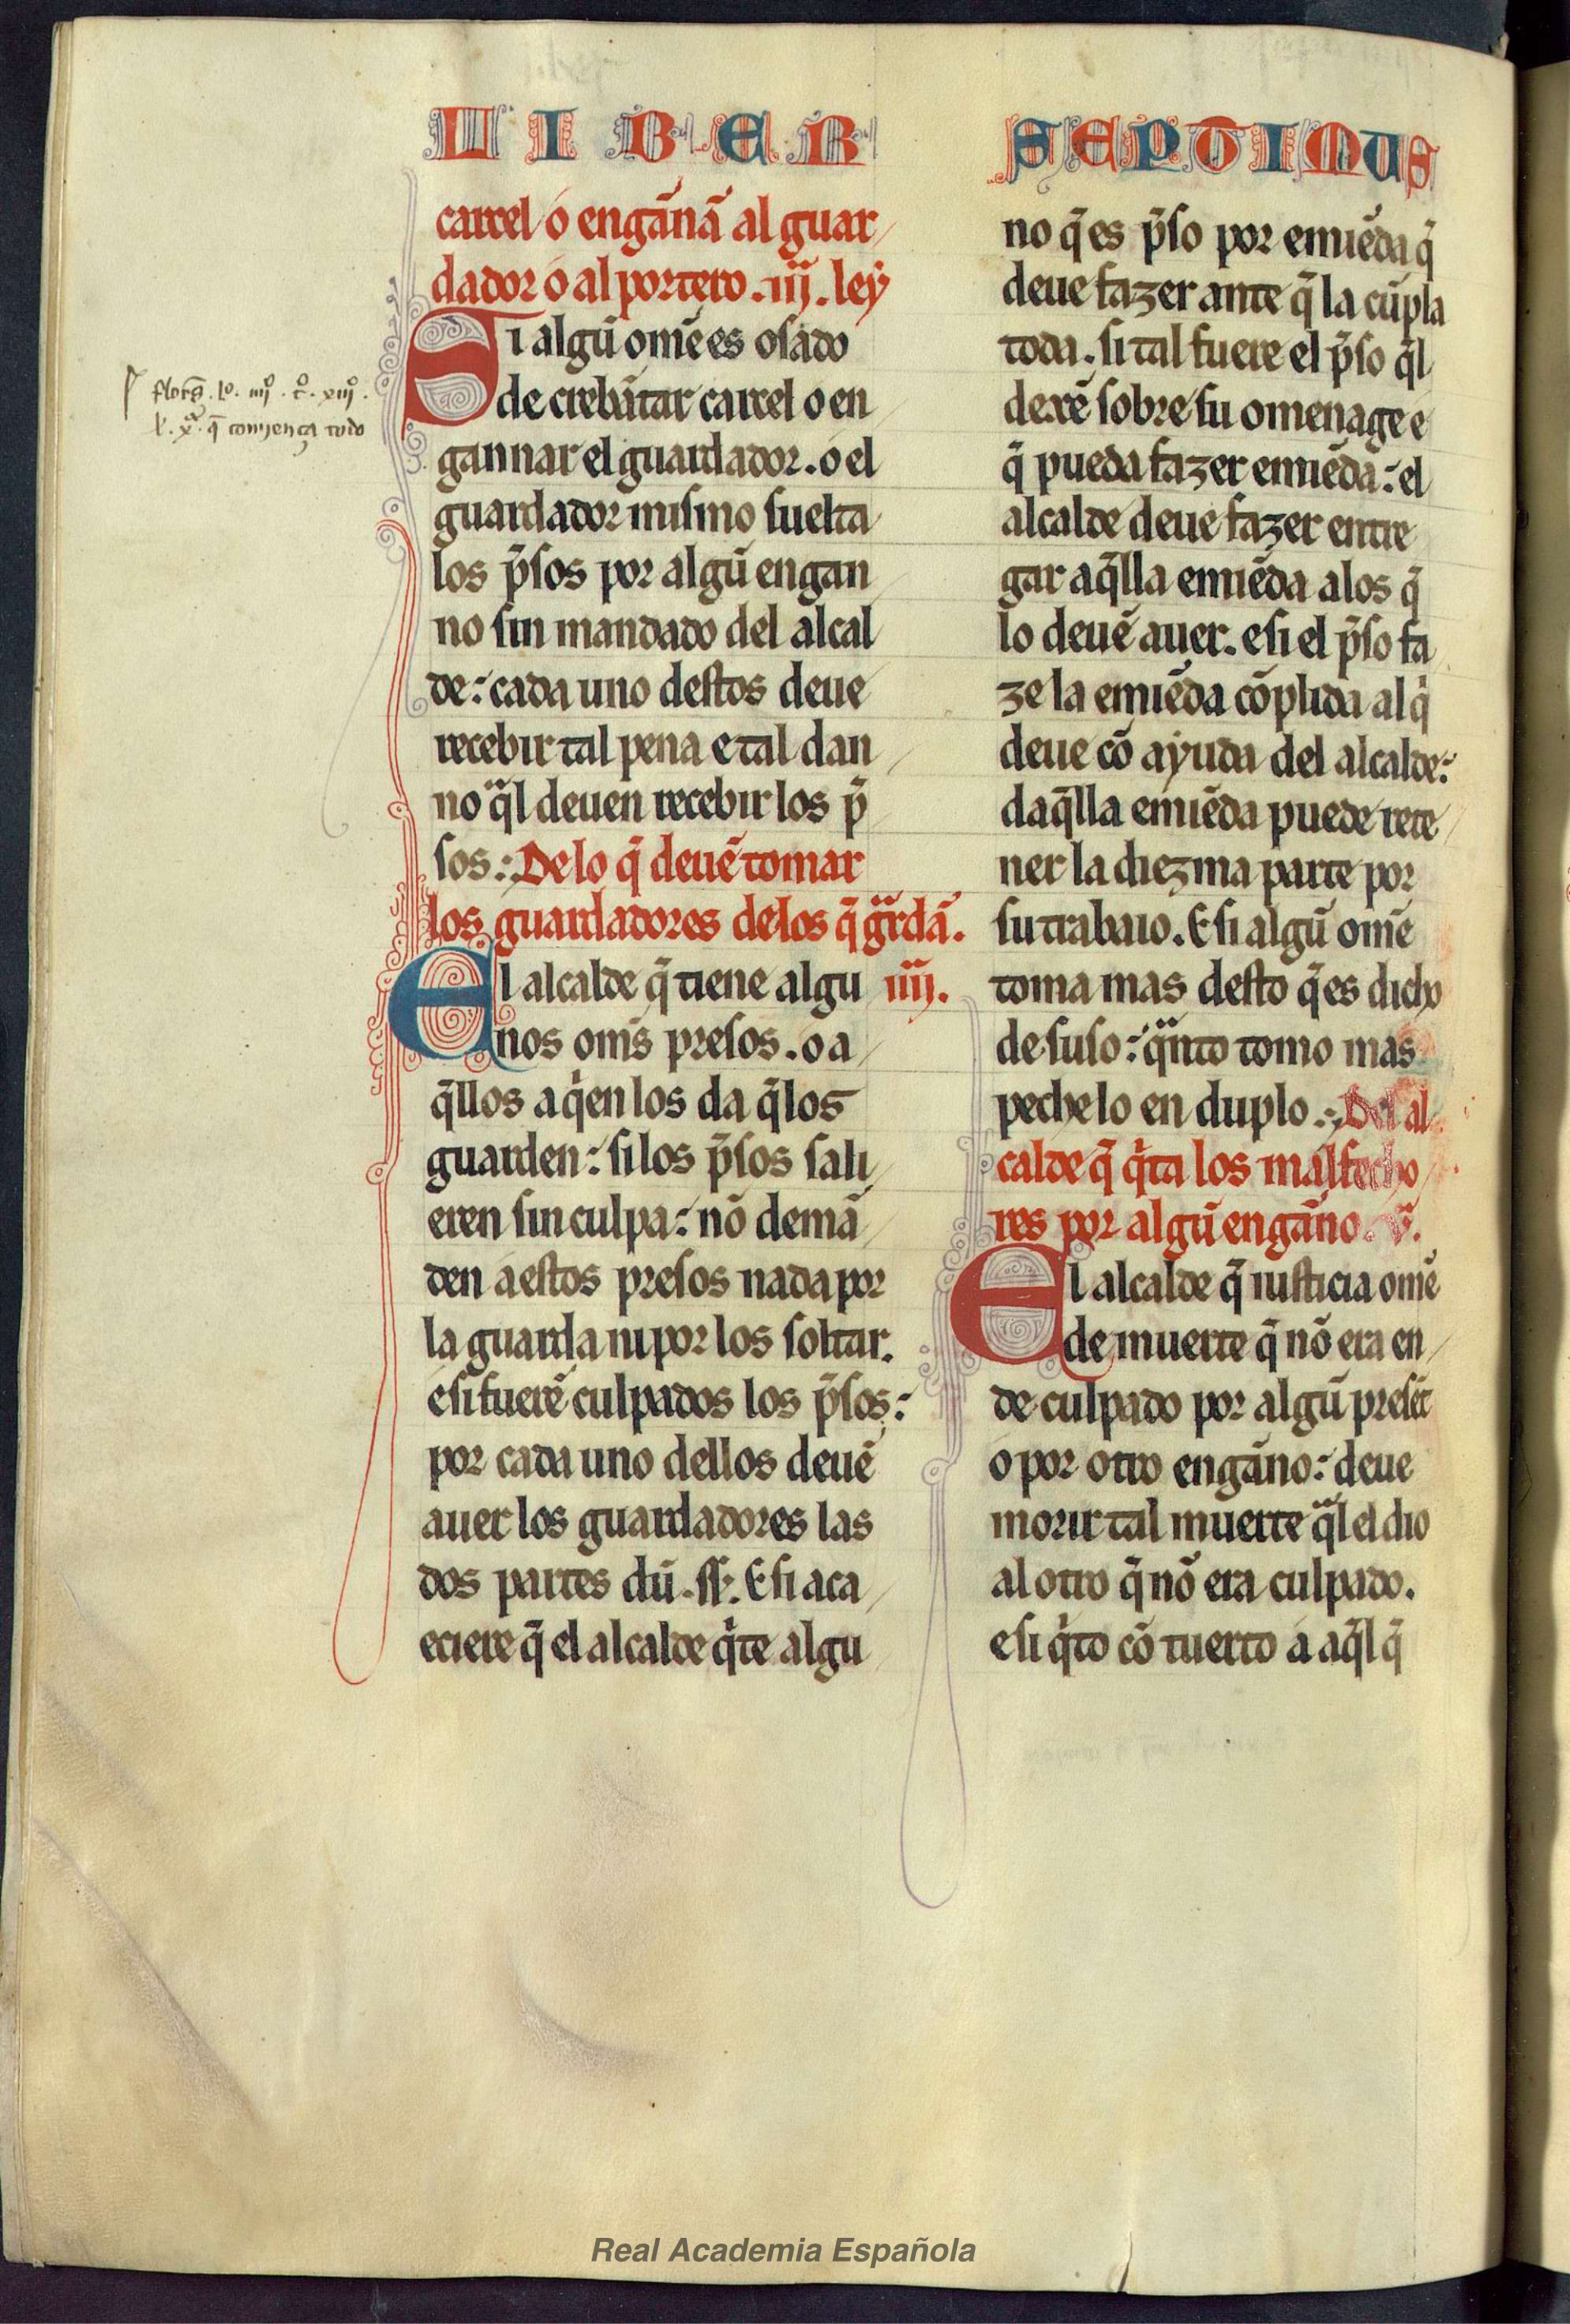 LIBER SEPTIMUS
carcel o engan̄nā al guar
dador o al portero .iij. ley
Si algū ome̅ es osado
de crebātar carcel o en
gannar el guardador. o el
guardador mismo suelta
los p̄sos por algū engan
no sin mandado del alcal
de: cada uno destos deue
recebir tal pena e tal dan
no q̄l deuen recebir los p̄
sos: De lo q̄ deuē tomar
los guardadores de los q̄ gr̄dā.
El alcalde q̄ tiene algu iiij.
nos om̄s presos. o a
q̄llos a q̇en los da q̄ los
guarden: si los p̄sos sali
eren sin culpa: nō demā
den a estos presos nada por
la guarda ni por los soltar.
e si fuerē culpados los p̄sos:
por cada uno dellos deuē
auer los guardadores las
dos partes dū .ss. E si aca
eciere q̄ el alcalde q̇te algu
no q̄ es p̄so por emiēda q̄
deue fazer ante q̄ la cūpla
toda. si tal fuere el p̄so q̄l
dexē sobre su omenage e
q̄ pueda fazer emiēda: el
alcalde deue fazer entre
gar aq̄lla emiēda a los q̄
lo deuē auer. e si el p̄so fa
ze la emiēda cōplida al q̇
deue cō ayuda del alcalde:
daq̄lla emiēda puede rete
ner la diezma parte por
su trabaio. E si algū omē
toma mas desto q̄ es dicho
de suso: q̄nto tomo mas
peche lo en duplo.: Del al
calde q̄ q̇ta los malfecho
res por algū engāno. v.
El alcalde q̄ iusticia omē
de muerte q̄ nō era en
de culpado por algū presēt
o por otro engāno: deue
morir tal muerte q̄l el dio
al otro q̄ nō era culpado.
e si q̇to cō tuerto a aq̄l q̄
q̄ comjença todo
Real Academia Española